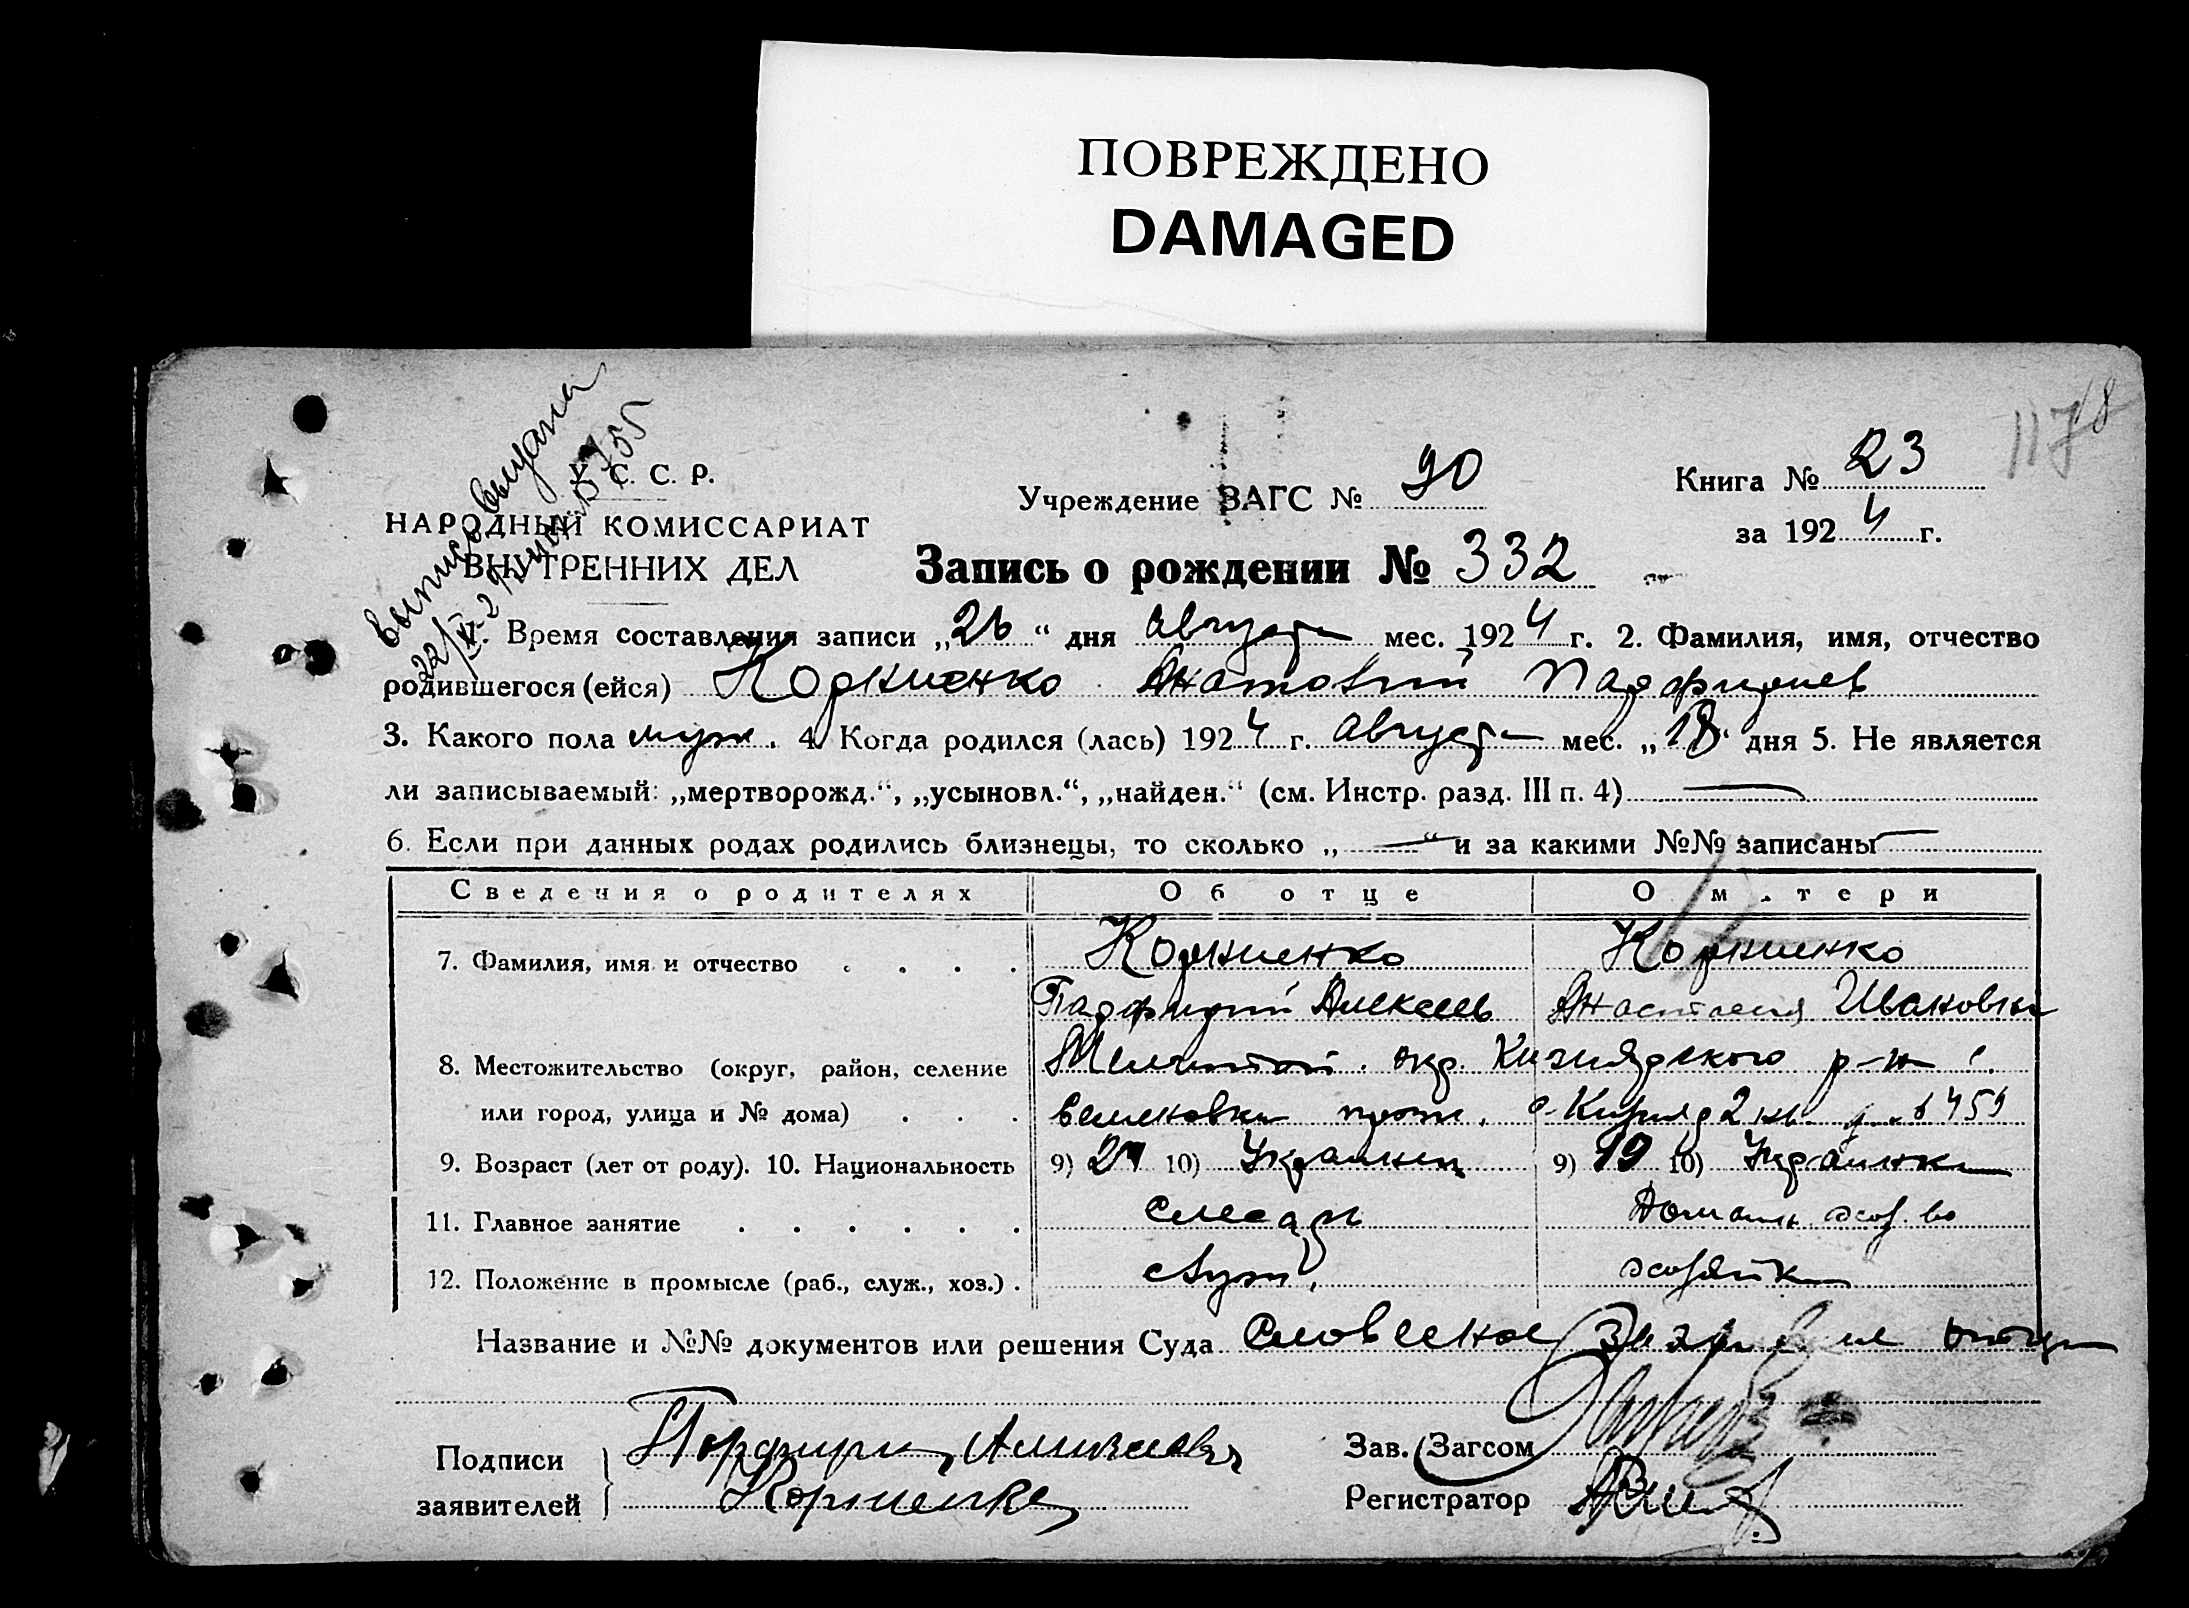 ПОВРЕЖДЕНО
DAMAGED
1178
выпись выдана
С. С. Р.
НАРОДНЫЙ КОМИССАРИАТ
ВНУТРЕННИХ ДЕЛ
Учреждение ЗАГС № 90
Книга № 23
за 1924 г.
Запись о рождении № 332
1. Время составления записи „26“ дня Августа мес. 1924 г. 2. Фамилия, имя, отчество
родившегося (ейся) Корниенко Анатолий Парфириев
3. Какого пола муж. 4. Когда родился (лась) 1924 г. Августа мес. „18“ дня 5. Не является
ли записываемый: „мертворожд.“, „усыновл.“, „найден.“ (см. Инстр. разд. III п. 4) —
6. Если при данных родах родились близнецы, то сколько „—“ и за какими №№ записаны —
Сведения о родителях Об отце О м тери
7. Фамилия, имя и отчество . . . . Корниенко Корниенко
Парфирий Алексеев Анастасия Ивановна
8. Местожительство (округ, район, селение Мелитоп. окр. Кизиярского р-на
или город, улица и № дома) . . . 459
9. Возраст (лет от роду). 10. Национальность 9) 24 10) Украинец 9) 19 10) Украинка
11. Главное занятие . . . . . . Слесарь Домашн. хоз-во
12. Положение в промысле (раб., служ., хоз.) . служ. хозяйка
Название и №№ документов или решения Суда Словесное заявление отца
Подписи
заявителей
Порфирий Алексеевич
Корниенко
Зав. Загсом
Регистратор